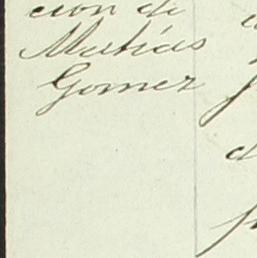 cion de
Matías
Gomez